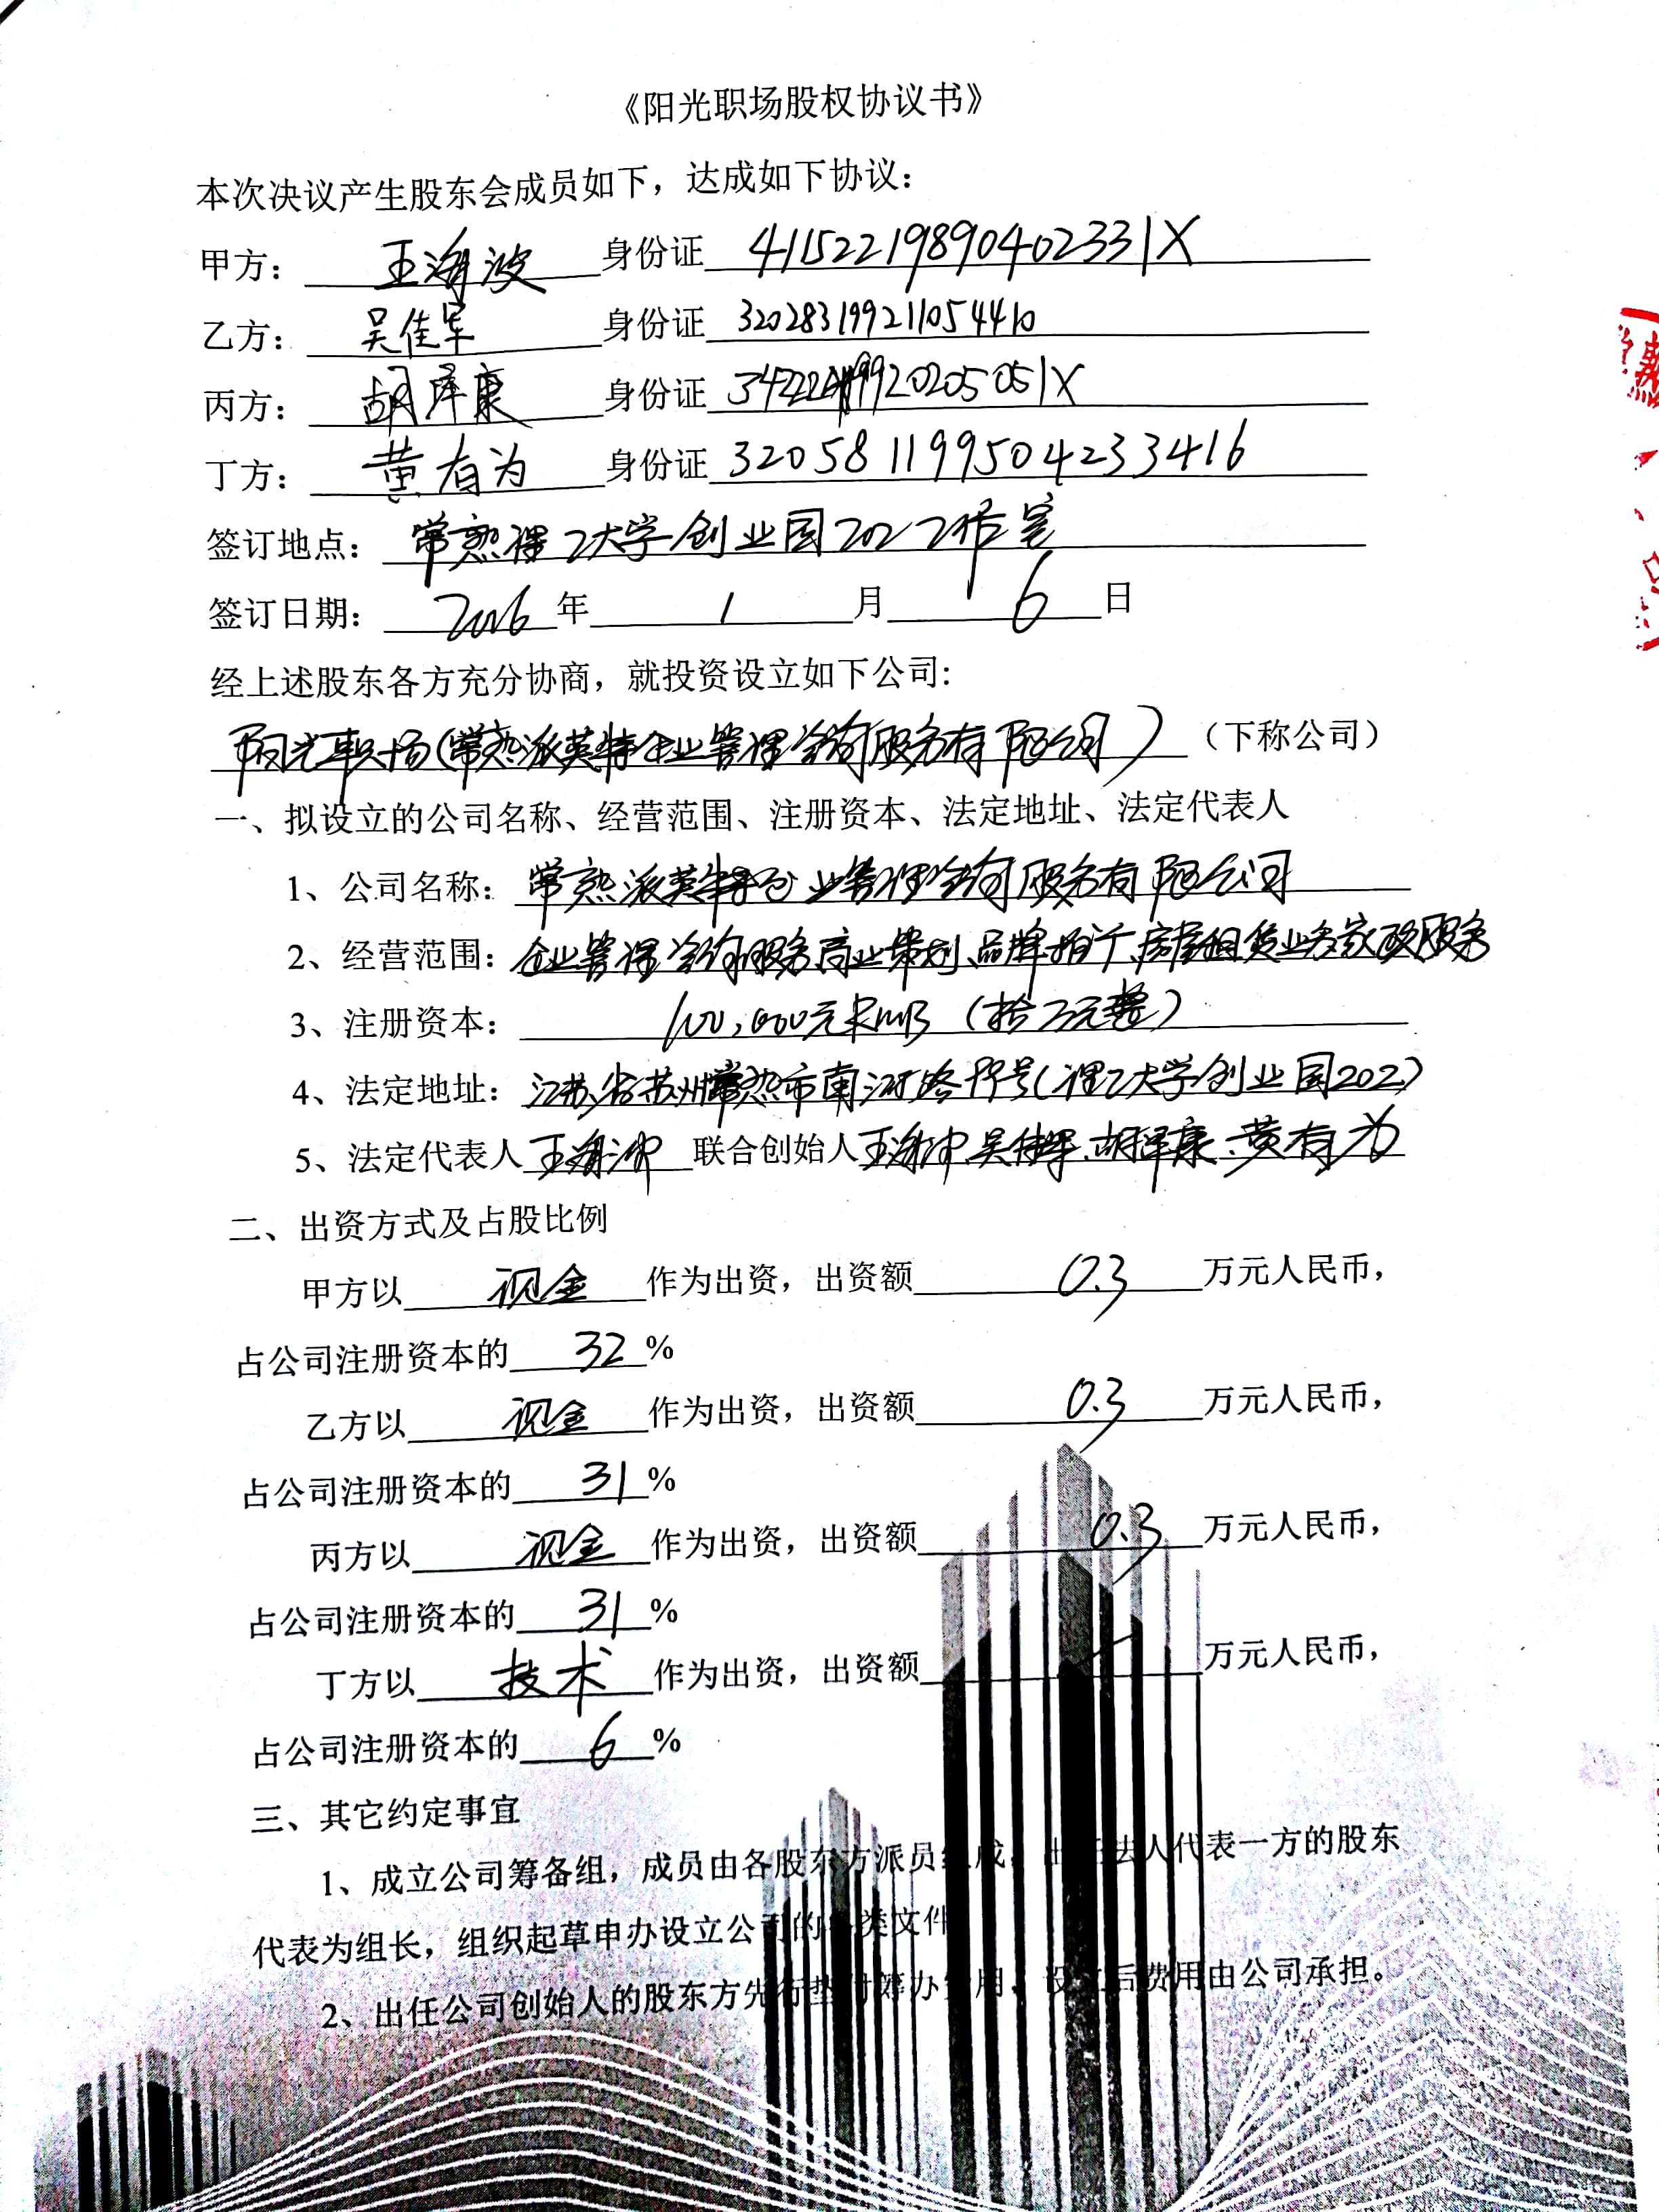 《阳光职场股权协议书》
本次决议产生股东会成员如下，达成如下协议：
甲方： 王海波 身份证 41152219890402331X
乙方： 吴佳军 身份证 320283199211054410
丙方： 胡泽康 身份证
丁方： 黄有为 身份证 320581199504233416
签订地点： 常熟理工大学创业园202工作室
签订日期： 2016 年 1 月 6 日
经上述股东各方充分协商，就投资设立如下公司：
阳光职场（常熟派英特企业管理咨询服务有限公司）（下称公司）
一、拟设立的公司名称、经营范围、注册资本、法定地址、法定代表人
1、公司名称： 常熟派英特企业管理咨询服务有限公司
2、经营范围： 企业管理咨询服务商业策划、品牌推广、房屋租赁业务家政服务
3、注册资本： 100,000元RMB（拾万元整）
4、法定地址： 江苏省苏州常熟市南三环路99号（理工大学创业园202）
5、法定代表人 王海波 联合创始人 王海波、吴佳军、胡泽康、黄有为
二、出资方式及占股比例
甲方以 现金 作为出资，出资额 0.3 万元人民币，
占公司注册资本的 32 %
乙方以 现金 作为出资，出资额 0.3 万元人民币，
占公司注册资本的 31 %
丙方以 现金 作为出资，出资额 0.3 万元人民币，
占公司注册资本的 31 %
丁方以 技术 作为出资，出资额 万元人民币，
占公司注册资本的 6 %
三、其它约定事宜
1、成立公司筹备组，成员由各股东方派员组成，出任法人代表一方的股东
代表为组长，组织起草申办设立公司的各类文件
2、出任公司创始人的股东方先行垫付筹办费用，设立后费用由公司承担。